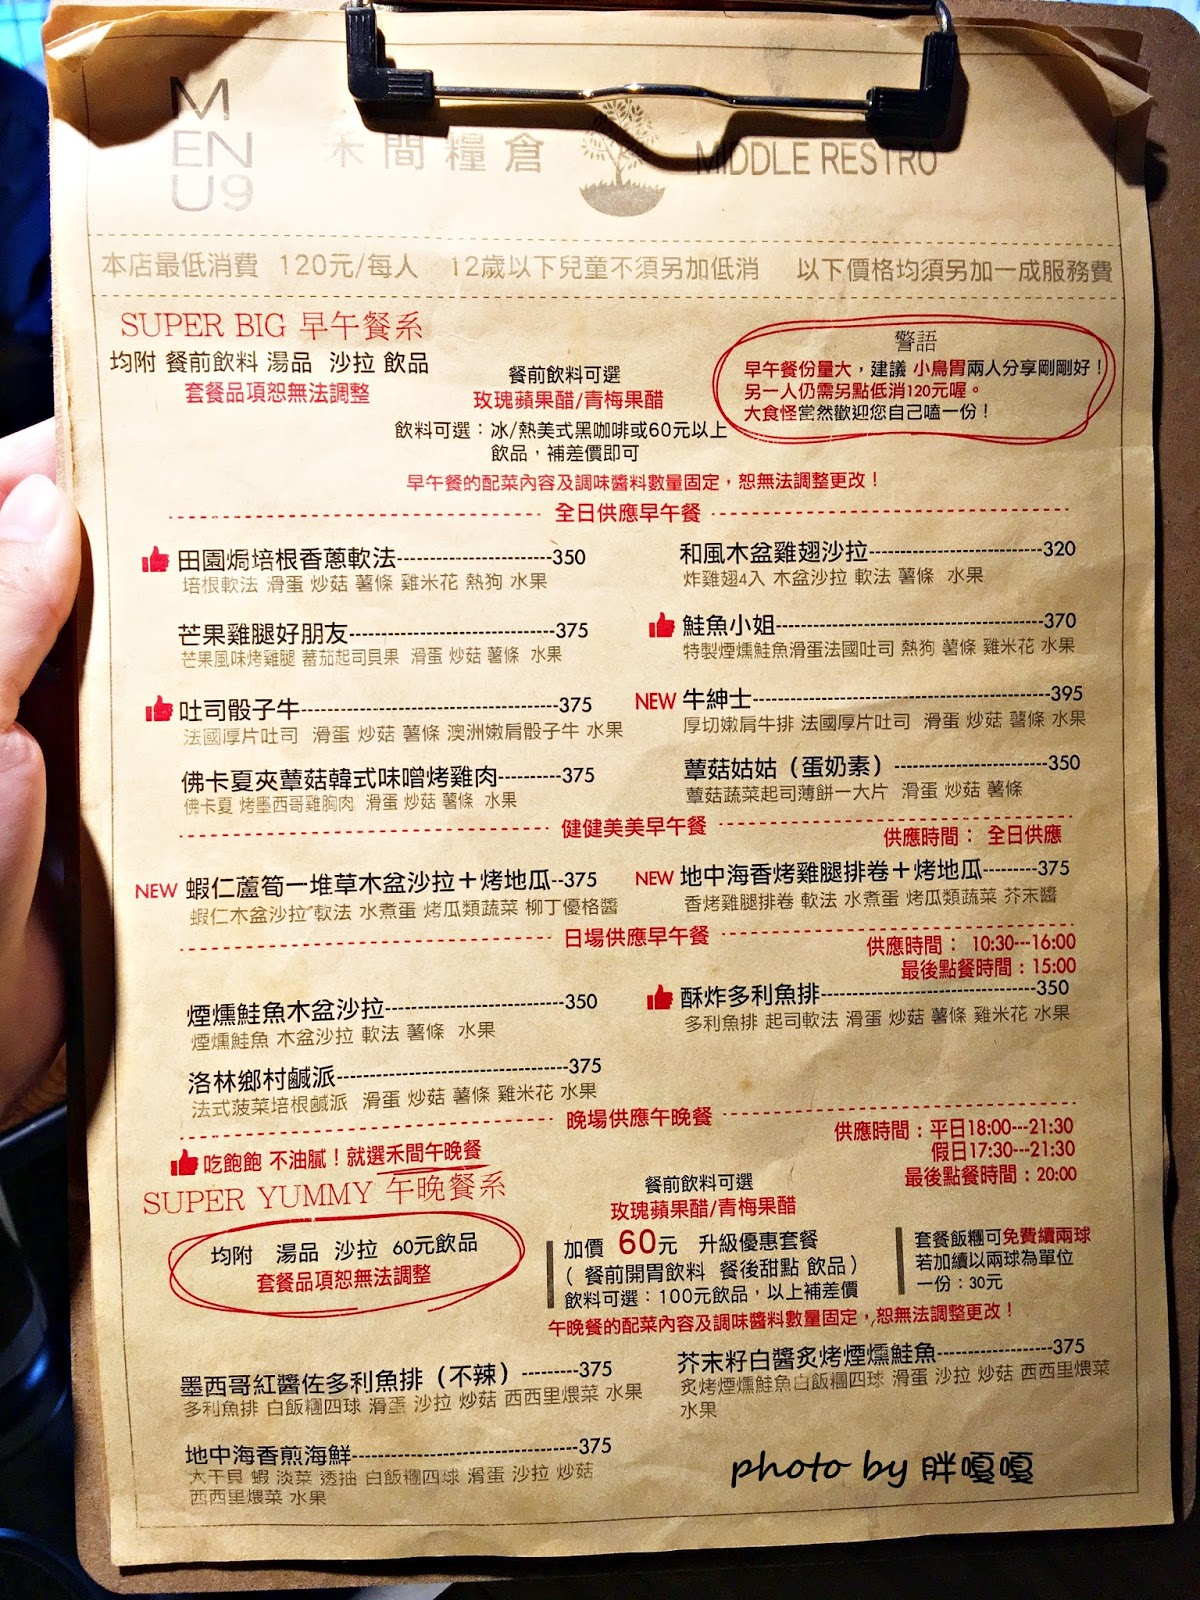 M
EN
U9
禾間糧倉
MIDDLE RESTRO
本店最低消費 120元/每人 12歲以下兒童不須另加低消 以下價格均須另加一成服務費
SUPER BIG 早午餐系
均附 餐前飲料 湯品 沙拉 飲品
套餐品項恕無法調整
餐前飲料可選
玫瑰蘋果醋/青梅果醋
飲料可選：冰/熱美式黑咖啡或60元以上
飲品，補差價即可
警語
早午餐份量大，建議 小鳥胃兩人分享剛剛好！
另一人仍需另點低消120元喔。
大食怪當然歡迎您自己嗑一份！
早午餐的配菜內容及調味醬料數量固定，恕無法調整更改！
全日供應早午餐
田園焗培根香蔥軟法-----350
培根軟法 滑蛋 炒菇 薯條 雞米花 熱狗 水果
和風木盆雞翅沙拉-----320
炸雞翅4入 木盆沙拉 軟法 薯條 水果
芒果雞腿好朋友-----375
芒果風味烤雞腿 蕃茄起司貝果 滑蛋 炒菇 薯條 水果
鮭魚小姐-----370
特製煙燻鮭魚滑蛋法國吐司 熱狗 薯條 雞米花 水果
吐司骰子牛-----375
法國厚片吐司 滑蛋 炒菇 薯條 澳洲嫩肩骰子牛 水果
NEW 牛紳士-----395
厚切嫩肩牛排 法國厚片吐司 滑蛋 炒菇 薯條 水果
佛卡夏夾蕈菇韓式味噌烤雞肉-----375
佛卡夏 烤墨西哥雞胸肉 滑蛋 炒菇 薯條 水果
蕈菇姑姑（蛋奶素）-----350
蕈菇蔬菜起司薄餅一大片 滑蛋 炒菇 薯條
健健美美早午餐
供應時間： 全日供應
NEW 蝦仁蘆筍一堆草木盆沙拉＋烤地瓜--375
蝦仁木盆沙拉 軟法 水煮蛋 烤瓜類蔬菜 柳丁優格醬
NEW 地中海香烤雞腿排卷＋烤地瓜-----375
香烤雞腿排卷 軟法 水煮蛋 烤瓜類蔬菜 芥末醬
日場供應早午餐
供應時間： 10:30---16:00
最後點餐時間：15:00
煙燻鮭魚木盆沙拉-----350
煙燻鮭魚 木盆沙拉 軟法 薯條 水果
酥炸多利魚排-----350
多利魚排 起司軟法 滑蛋 炒菇 薯條 雞米花 水果
洛林鄉村鹹派-----375
法式菠菜培根鹹派 滑蛋 炒菇 薯條 雞米花 水果
晚場供應午晚餐
供應時間：平日18:00---21:30
假日17:30---21:30
最後點餐時間：20:00
吃飽飽 不油膩！就選禾間午晚餐
SUPER YUMMY 午晚餐系
均附 湯品 沙拉 60元飲品
套餐品項恕無法調整
餐前飲料可選
玫瑰蘋果醋/青梅果醋
加價 60元 升級優惠套餐
（ 餐前開胃飲料 餐後甜點 飲品）
飲料可選：100元飲品，以上補差價
套餐飯糰可免費續兩球
若加續以兩球為單位
一份：30元
午晚餐的配菜內容及調味醬料數量固定，恕無法調整更改！
墨西哥紅醬佐多利魚排（不辣）-----375
多利魚排 白飯糰四球 滑蛋 沙拉 炒菇 西西里煨菜 水果
芥末籽白醬炙烤煙燻鮭魚-----375
炙烤煙燻鮭魚白飯糰四球 滑蛋 沙拉 炒菇 西西里煨菜
水果
地中海香煎海鮮-----375
大干貝 蝦 淡菜 透抽 白飯糰四球 滑蛋 沙拉 炒菇
西西里煨菜 水果
photo by 胖嘎嘎